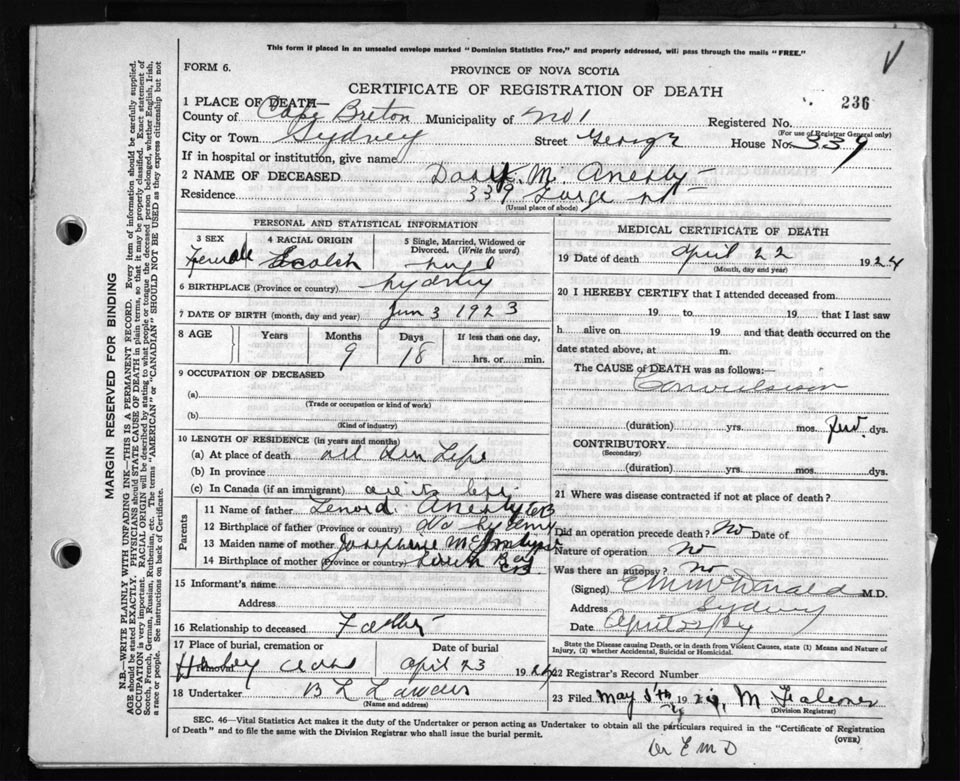 This form if placed in an unsealed envelope marked "Dominion Statistics Free," and properly addressed, will pass through the mails "FREE."
FORM 6.
PROVINCE OF NOVA SCOTIA
CERTIFICATE OF REGISTRATION OF DEATH
236
1 PLACE OF DEATH—
County of Cape Breton Municipality of No 1 Registered No.
(For use of Registrar General only)
City or Town Sydney Street George House No. 339
If in hospital or institution, give name
2 NAME OF DECEASED M.
Residence 339 George St
(Usual place of abode)
PERSONAL AND STATISTICAL INFORMATION
3 SEX 4 RACIAL ORIGIN 5 Single, Married, Widowed or Divorced. (Write the word)
Female Scotch
6 BIRTHPLACE (Province or country) Sydney
7 DATE OF BIRTH (month, day and year) 3 1923
8 AGE Years Months Days If less than one day,
9 18 hrs. or min.
9 OCCUPATION OF DECEASED
(a)
(Trade or occupation or kind of work)
(b)
(Kind of industry)
10 LENGTH OF RESIDENCE (in years and months)
(a) At place of death all Life
(b) In province
(c) In Canada (if an immigrant)
Parents
11 Name of father
12 Birthplace of father (Province or country)
13 Maiden name of mother Josephine
14 Birthplace of mother (Province or country)
15 Informant's name
Address
16 Relationship to deceased Father
17 Place of burial, cremation or removal Date of burial
April 23 1924
18 Undertaker
(Name and address)
MEDICAL CERTIFICATE OF DEATH
19 Date of death April 22 1924
(Month, day and year)
20 I HEREBY CERTIFY that I attended deceased from
19 to 19 that I last saw
h alive on 19 and that death occurred on
date stated above, at m.
The CAUSE of DEATH was as follows:
Convulsion
(duration) yrs. mos. few dys.
CONTRIBUTORY
(Secondary)
(duration) yrs. mos. dys.
21 Where was disease contracted if not at place of death?
Did an operation precede death? No Date of
Nature of operation No
Was there an autopsy? No
(Signed) McDonald M.D.
Address Sydney
Date April
State the Disease causing Death, or in death from Violent Causes, state (1) Means and Nature of Injury, (2) whether Accidental, Suicidal or Homicidal.
22 Registrar's Record Number
23 Filed May 5th 19 M
(Division Registrar)
SEC. 46—Vital Statistics Act makes it the duty of the Undertaker or person acting as Undertaker to obtain all the particulars required in the "Certificate of Registration
of Death" and to file the same with the Division Registrar who shall issue the burial permit.
(OVER)
Dr E M D
MARGIN RESERVED FOR BINDING
N.B.—WRITE PLAINLY WITH UNFADING INK—THIS IS A PERMANENT RECORD. Every item of information should be carefully supplied.
AGE should be stated EXACTLY. PHYSICIANS should STATE CAUSE OF DEATH in plain terms, so that it may be properly classified. Exact statement of
OCCUPATION is very important. RACIAL ORIGIN will be described by stating to what people or tongue the deceased person belonged, whether English, Irish,
Scotch, French, German, Russian, Ruthenian, etc. The terms "AMERICAN" or "CANADIAN" SHOULD NOT BE USED as they express citizenship but not
a race or people. See instructions on back of Certificate.